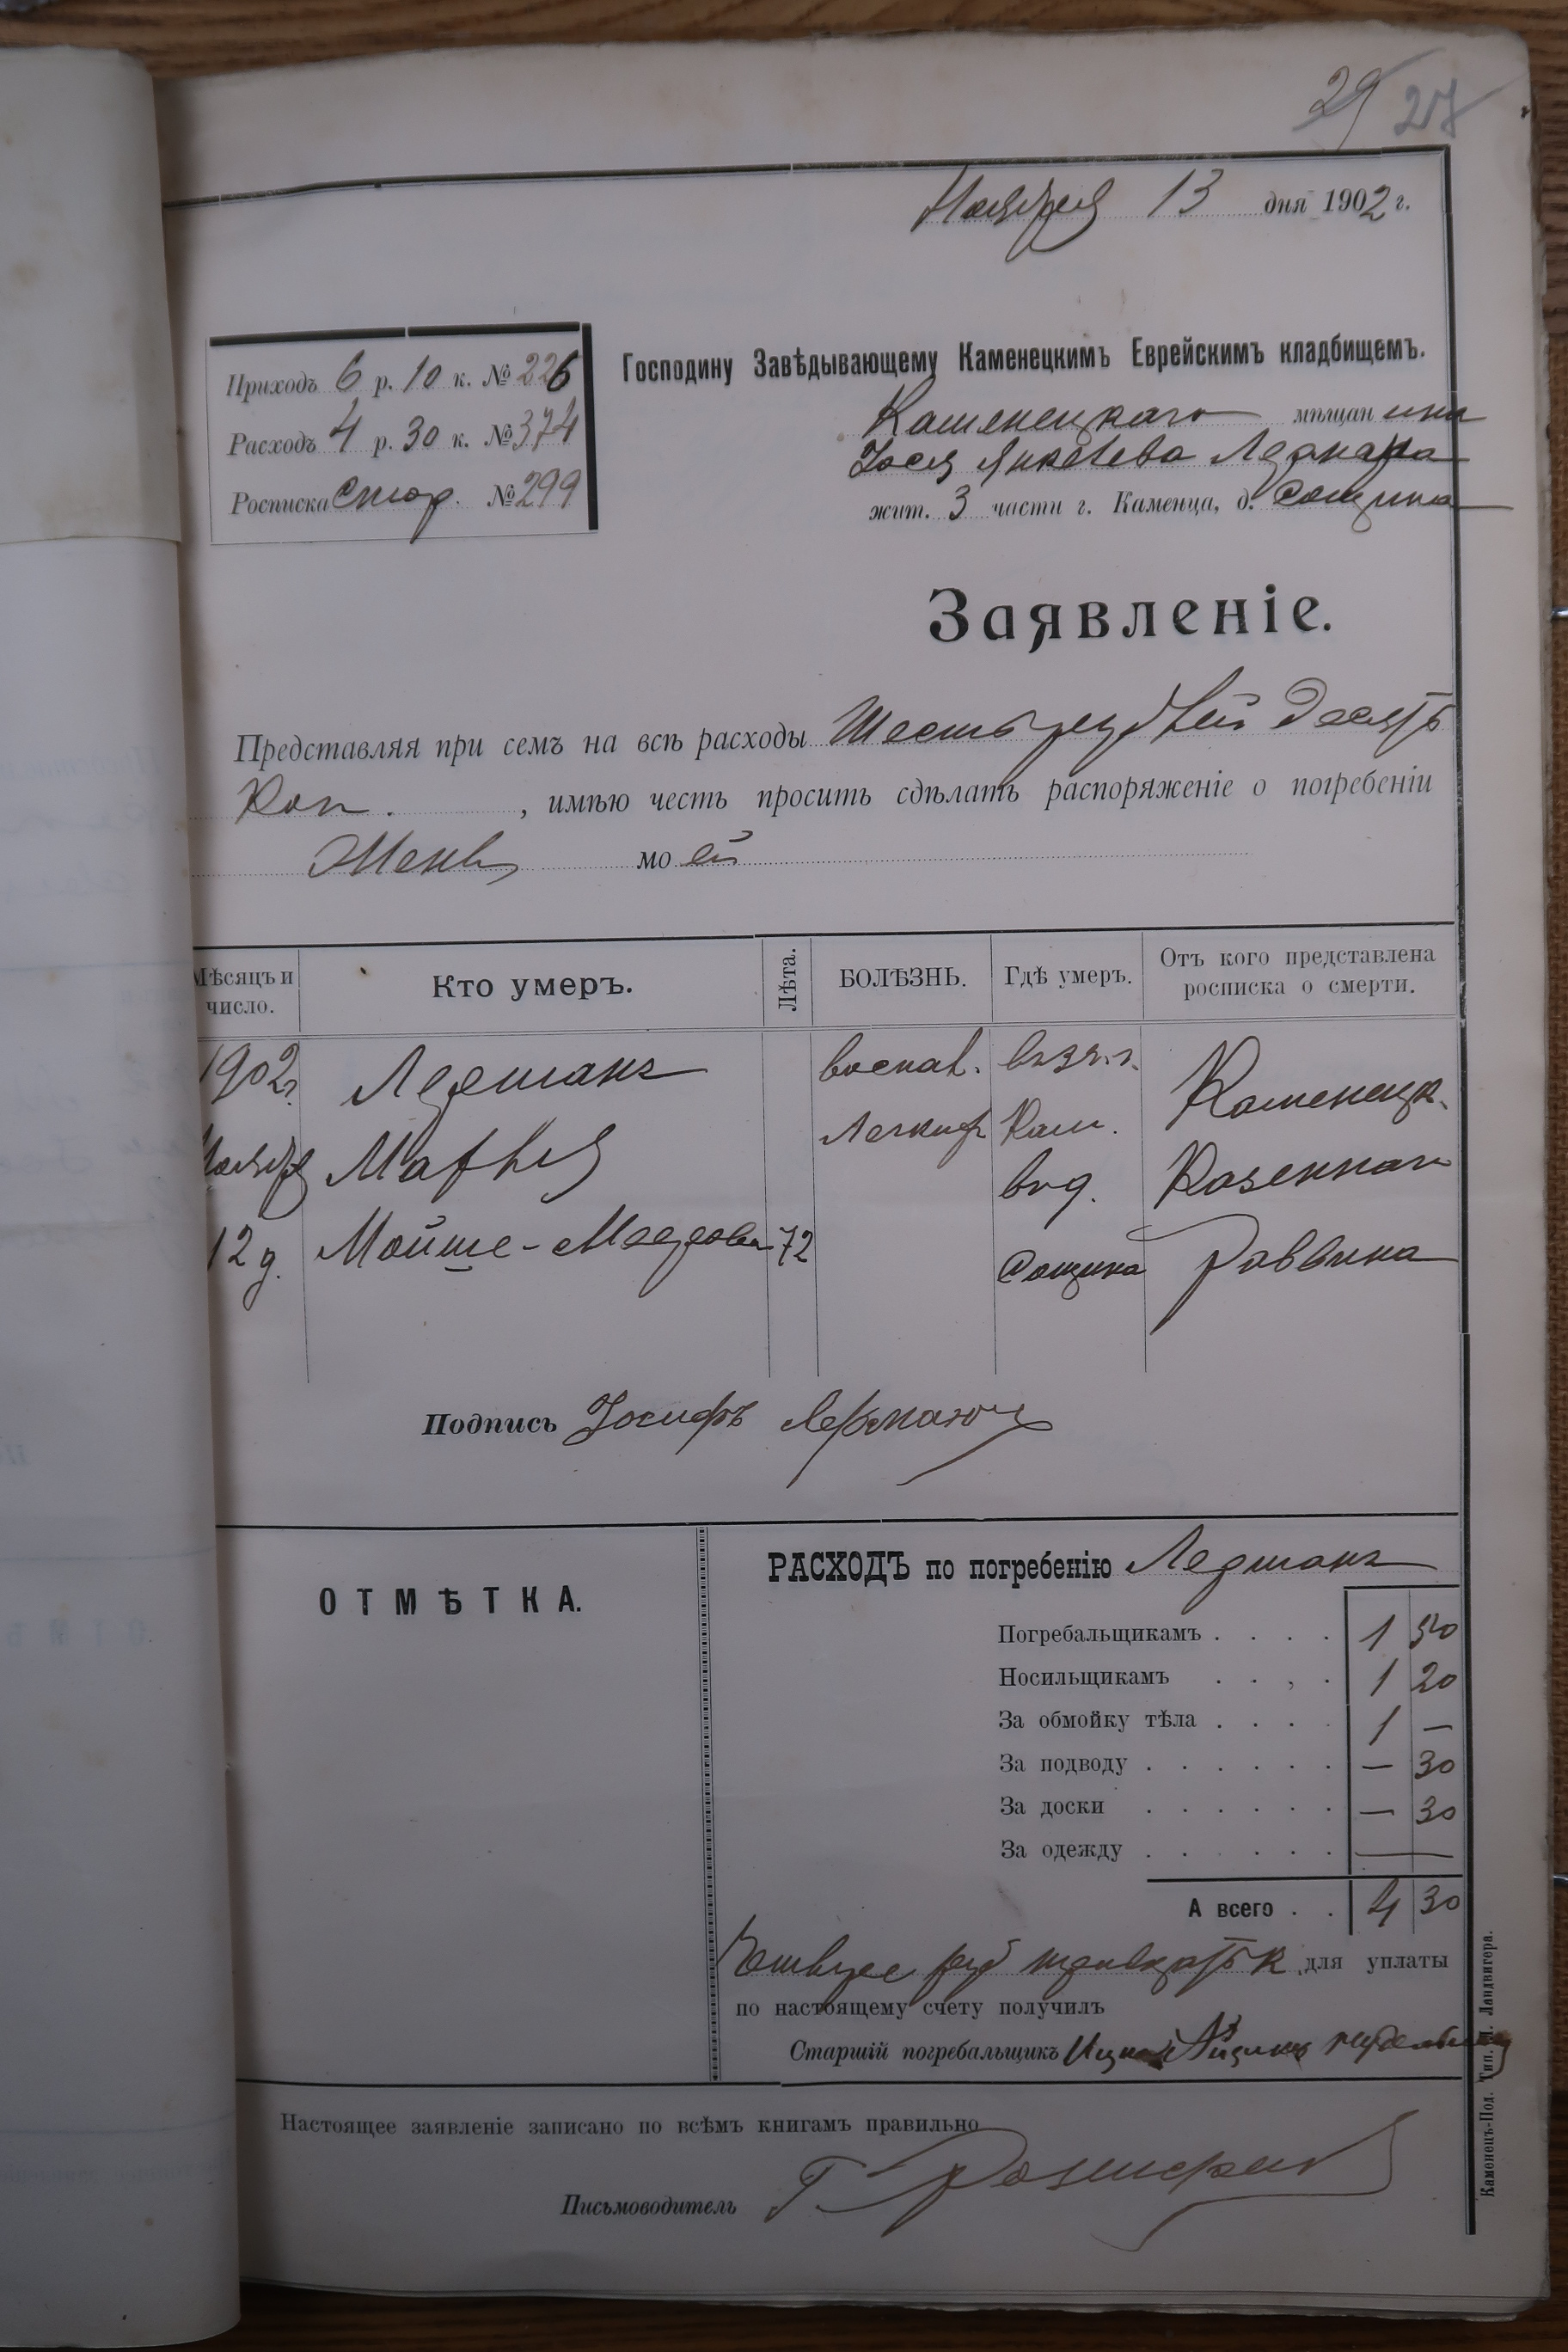 29 27
Ноября 13 дня 1902 г.
Приходъ 6 р. 10 к. № 226
Расходъ 4 р. 30 к. № 374
Росписка стор. № 299
Господину Завѣдывающему Каменецкимъ Еврейскимъ кладбищемъ.
Каменецкаго мѣщанина
Іося Янкелева Лермана
жит. 3 части г. Каменца, д. Сощина
Заявленіе.
Представляя при семъ на всѣ расходы Шесть рублей десять
Коп. , имѣю честь просить сдѣлать распоряженіе о погребеніи
Жены моей
Мѣсяцъ и число. Кто умеръ. Лѣта. БОЛѢЗНЬ. Гдѣ умеръ. Отъ кого представлена росписка о смерти.
1902г. Лерманъ воспал. въ 3 ч. г. Каменецк.
Ноября Легкихъ Кам. Казеннаго
12 д. Мойше- 72 Сощина Раввина
Подпись Іосифъ Лерман
ОТМѢТКА.
РАСХОДЪ по погребенію Лерманъ
Погребальщикамъ . . . . 1 50
Носильщикамъ . . . . 1 20
За обмойку тѣла . . . . 1 —
За подводу . . . . . . — 30
За доски . . . . . . — 30
За одежду . . . . . . —
А всего . . 4 30
Четыре руб тридцать к для уплаты
по настоящему счету получилъ
Старшій погребальщикъ
Настоящее заявленіе записано по всѣмъ книгамъ правильно
Письмоводитель Г
Каменецъ-Под. Тип. Ландвигера.